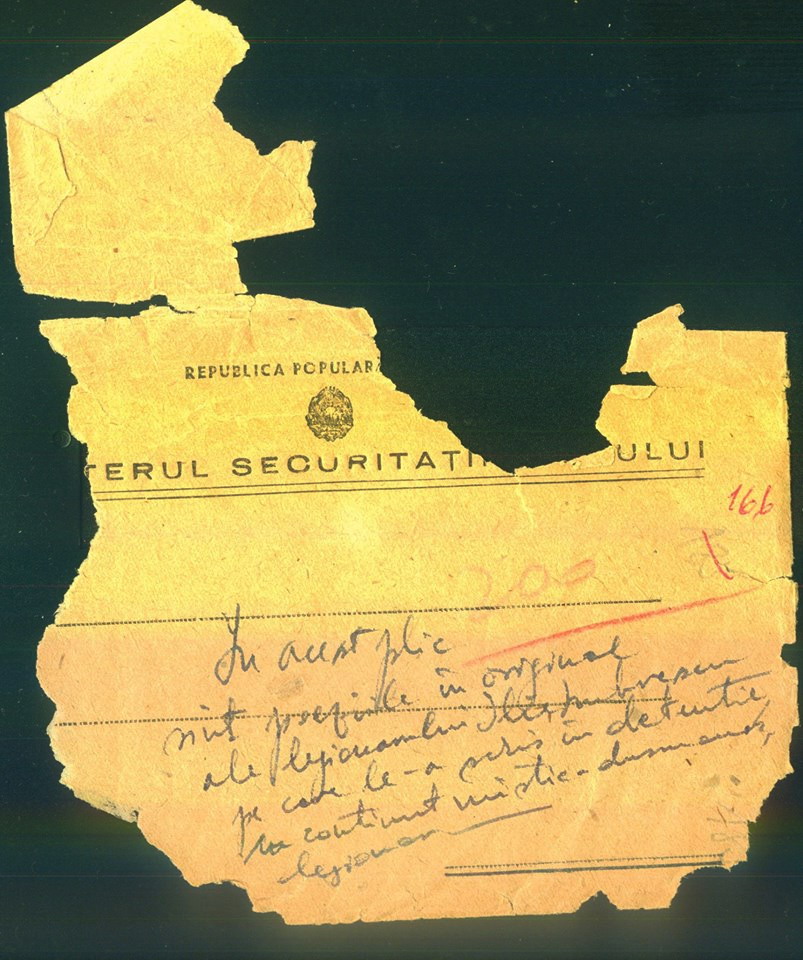 REPUBLICA POPULAR
TERUL SECURITATII ULUI
166
200
In acest plic
sint poeziile in original
ale legionarului
pe care le-a scris in detentie
cu continut mistic-dusmanos,
legionar